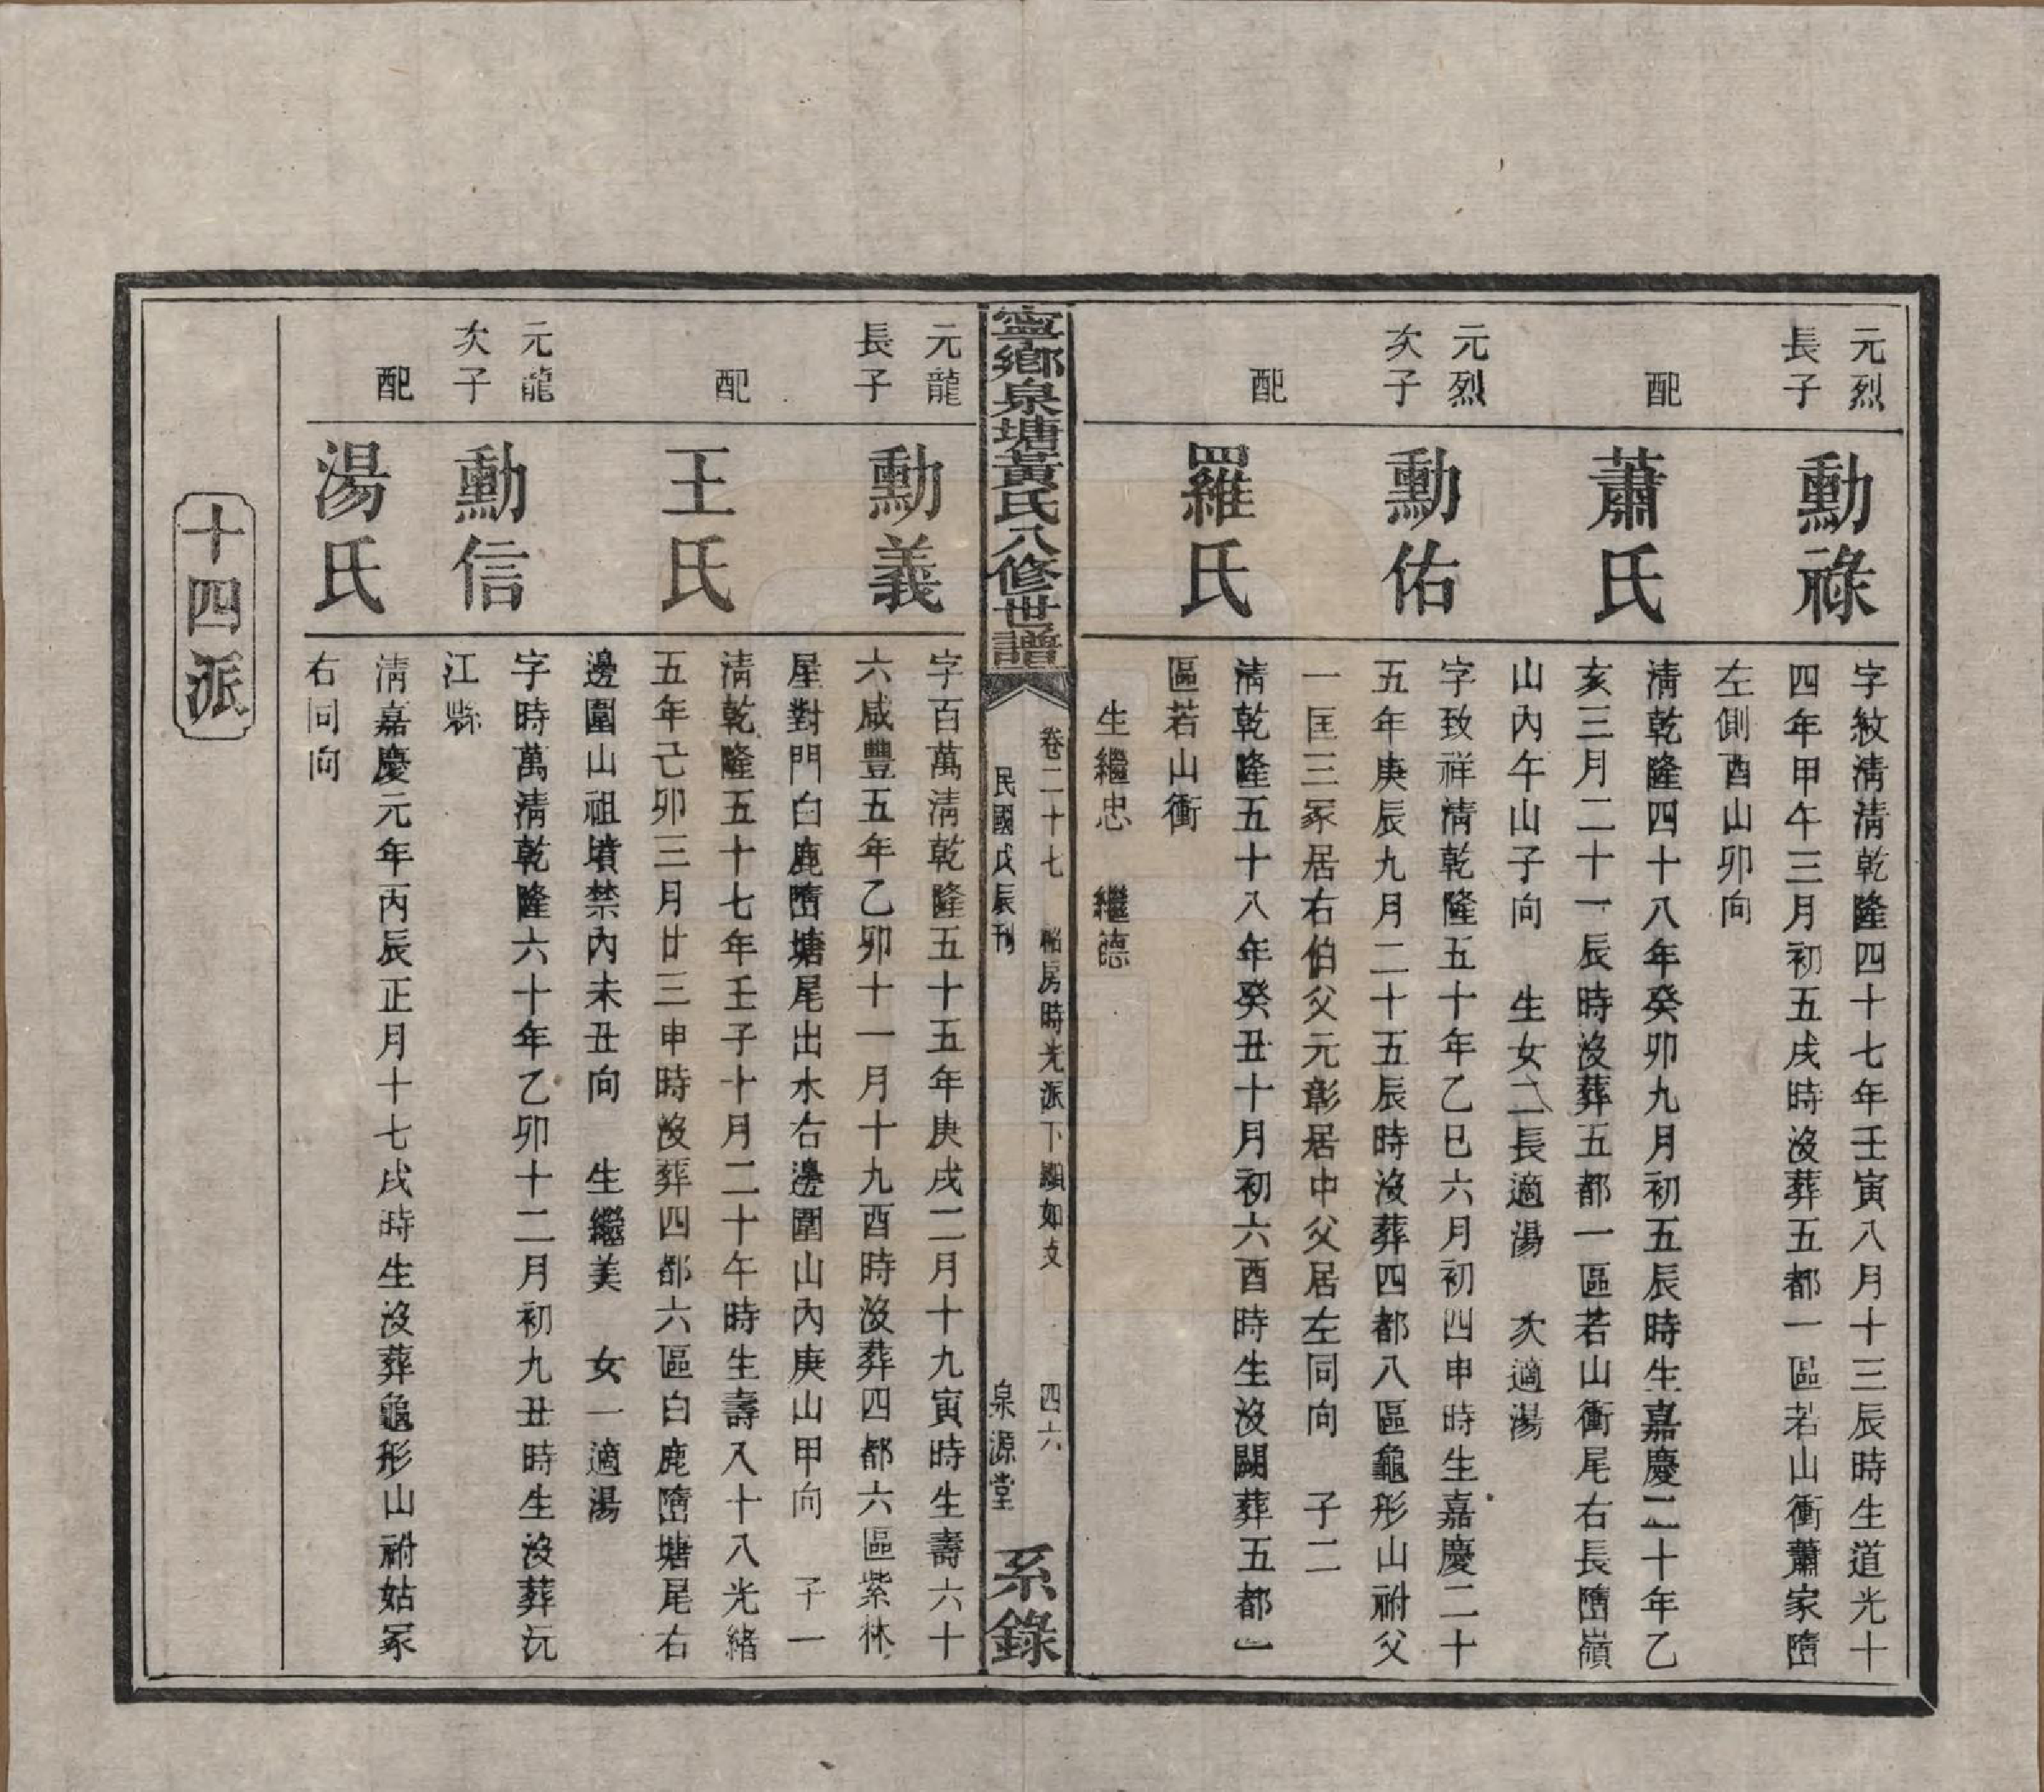 元烈
長子
勳祿
字紋清清乾隆四十七年壬寅八月十三辰時生道光十
四年甲午三月初五戌時沒葬五都一區若山衝蕭家墮
左側酉山卯向
配
蕭氏
清乾隆四十八年癸卯九月初五辰時生嘉慶二十年乙
亥三月二十一辰時沒葬五都一區若山衝尾右長墮嶺
山內午山子向 生女二長適湯 次適湯
元烈
次子
勳佑
字致祥清乾隆五十年乙巳六月初四申時生嘉慶二十
五年庚辰九月二十五辰時沒葬四都八區龜形山祔父
一匡三冢居右伯父元彰居中父居左同向 子二
配
羅氏
清乾隆五十八年癸丑十月初六酉時生沒闕葬五都一
區若山衝
生繼忠 繼德
寧鄉泉塘黃氏八修世譜
卷二十七 昭房時光派下顯如支 四六
民國戊辰刊 泉源堂
系錄
元龍
長子
勳義
字百萬清乾隆五十五年庚戌二月十九寅時生壽六十
六咸豐五年乙卯十一月十九酉時沒葬四都六區紫林
屋對門白鹿墮塘尾出水右邊圍山內庚山甲向 子一
配
王氏
清乾隆五十七年壬子十月二十午時生壽八十八光緒
五年己卯三月廿三申時沒葬四都六區白鹿墮塘尾右
邊圍山祖墳禁內未丑向 生繼美 女一適湯
元龍
次子
勳信
字時萬清乾隆六十年乙卯十二月初九丑時生沒葬沅
江縣
配
湯氏
清嘉慶元年丙辰正月十七戌時生沒葬龜形山祔姑冢
右同向
十四派